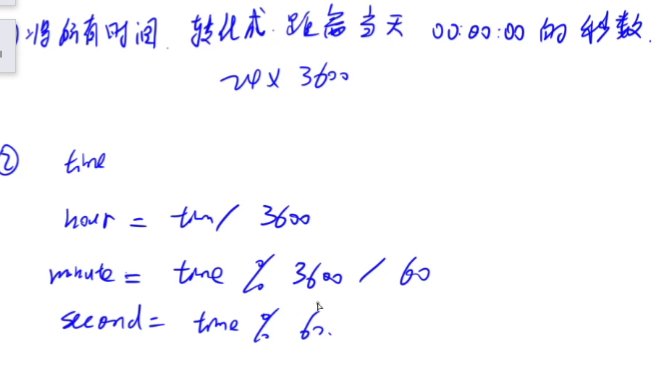 )将所有时间 转化成 距离当天 00:00:00 的秒数.
24 x 3600
② time
hour = time / 3600
minute = time % 3600 / 60
second = time % 60.